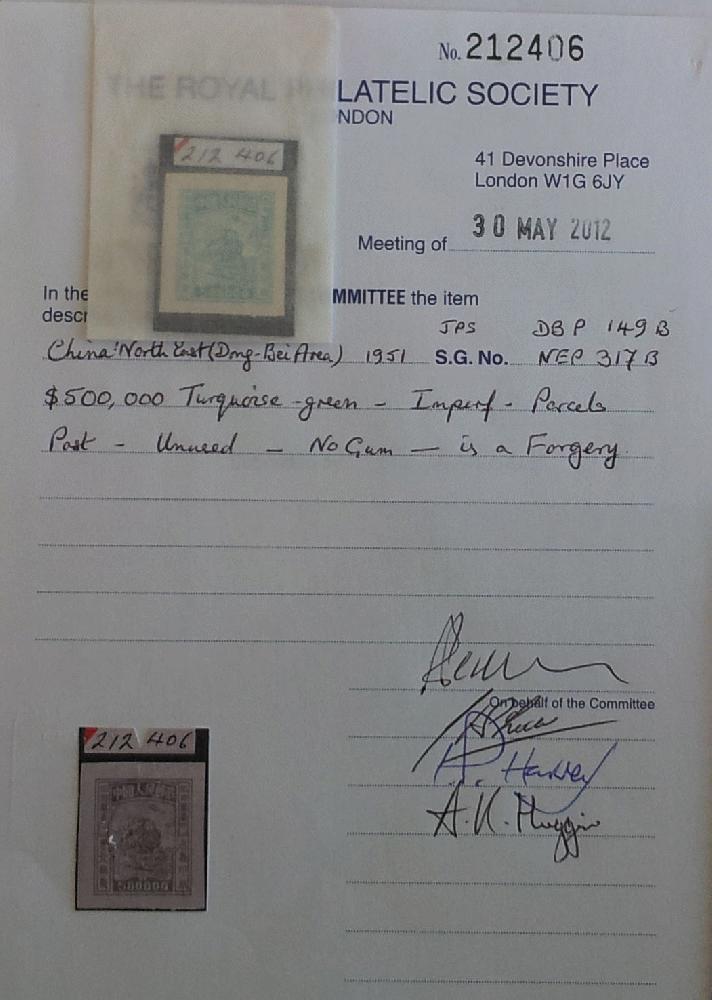 No. 212406
THE ROYAL PHILATELIC SOCIETY
NDON
212 406
41 Devonshire Place
London W1G 6JY
Meeting of 30 MAY 2012
In the
MMITTEE the item
descr
JPS DBP 149B
China: North East (Dong-Bei Area) 1951 S.G. No. NEP 317B
$500,000 Turquoise-green - Imperf - Parcels
Post - Unused - No Gum - is a Forgery
On behalf of the Committee
P. Harvey
A.K. Huggins
212 406
500000